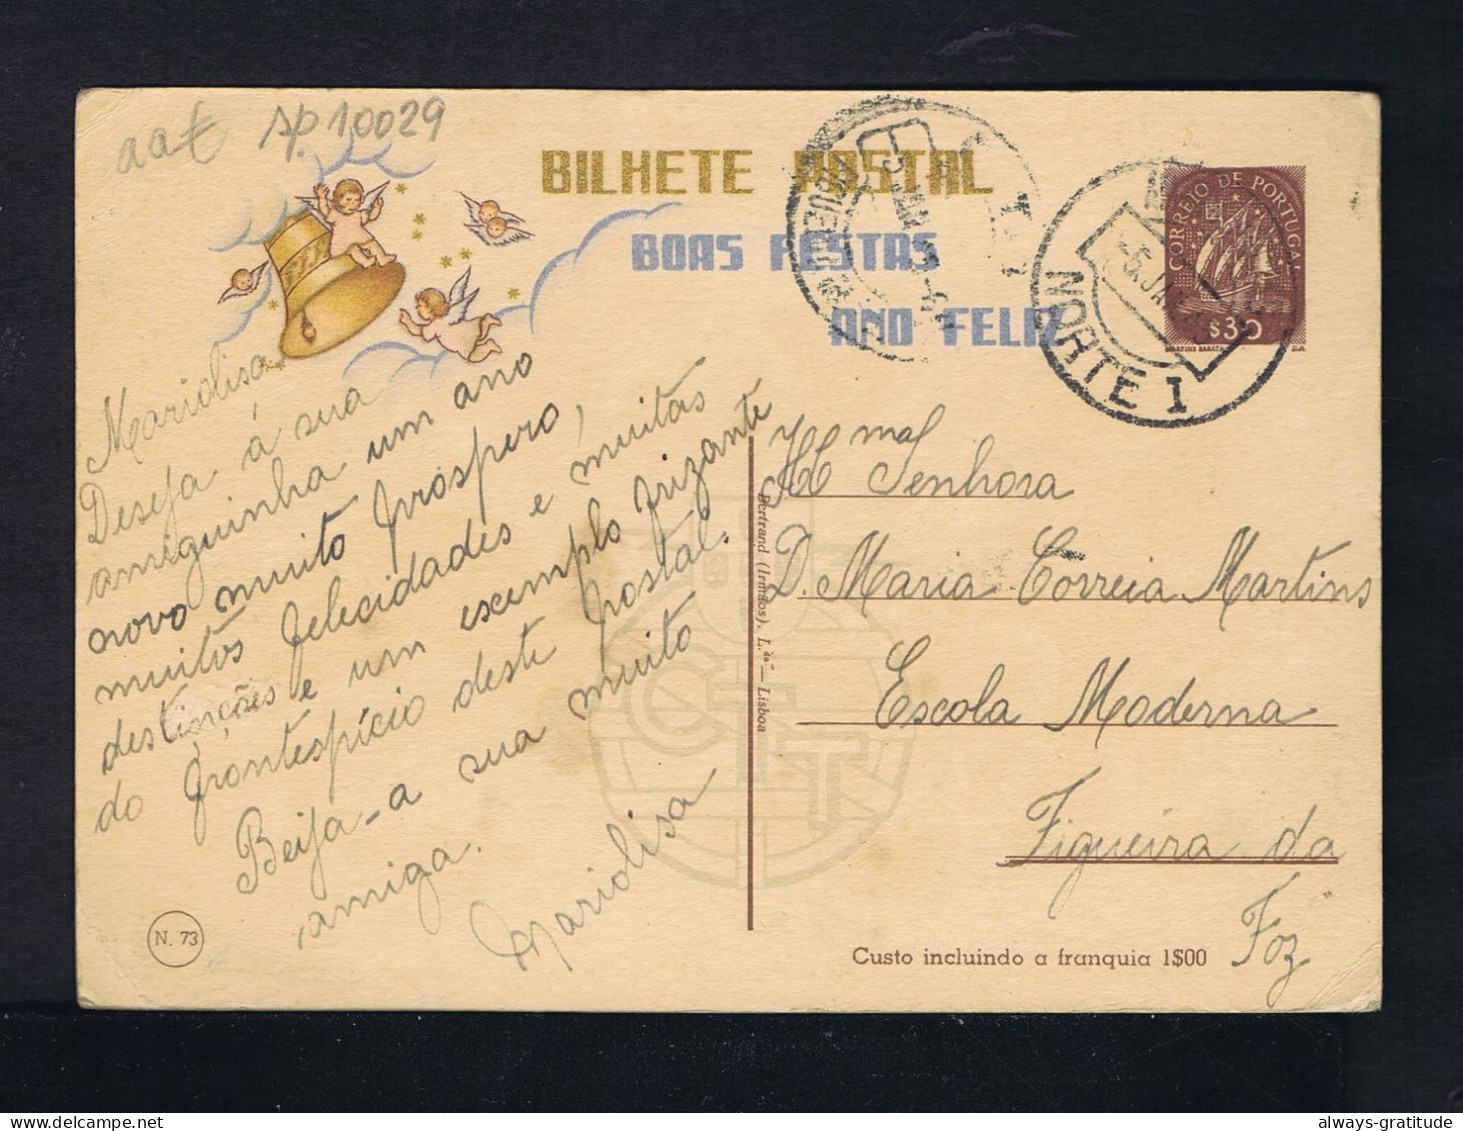 aat Ap 10029
BILHETE POSTAL
BOAS FESTAS
ANO FELIZ
CORREIO DE PORTUGAL
$30
NORTE I
Mariolisa
Deseja á sua
amiguinha um ano
novo muito próspero,
muitas felecidades e muitas
destinções e um exemplo frizante
do frontespício deste postal.
Beija-a sua muito
amiga.
Mariolisa
Bertrand (Irmãos), L.da — Lisboa
CTT
Senhora
D. Maria Correia Martins
Escola Moderna
Figueira da
Foz
N. 73
Custo incluindo a franquia 1$00
always-gratitude
© delcampe.net